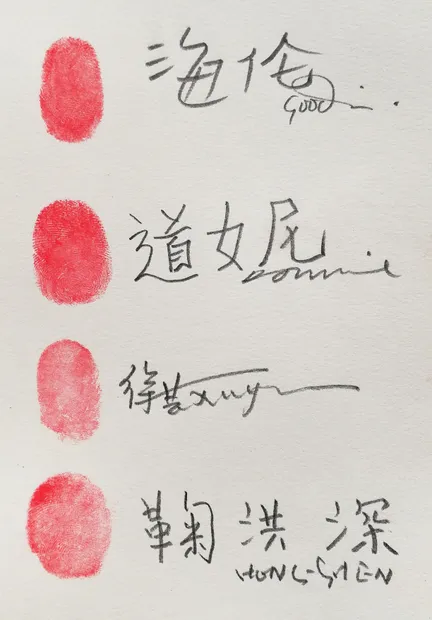 海伦
Good
道妮
Donnie
徐芸
鞠洪深
HONG-SHEN